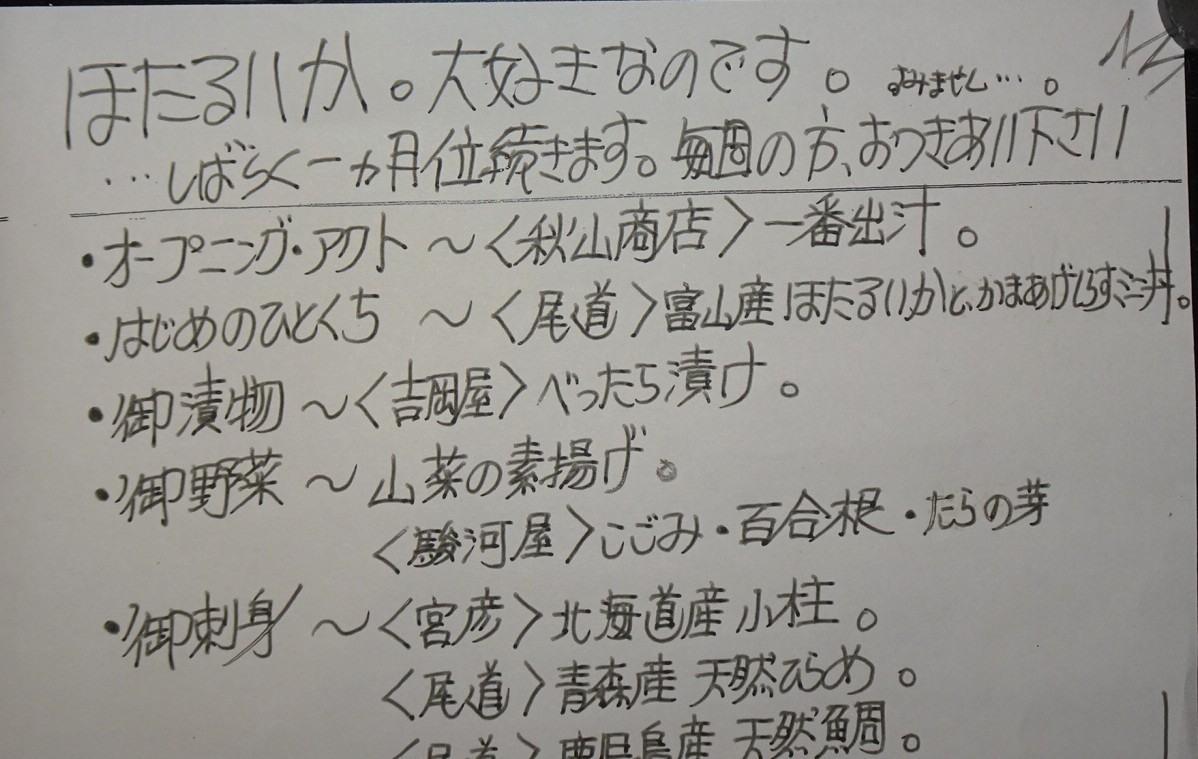 ほたるいか。大好きなのです。すみません…。
…しばらく一ヵ月位続きます。毎週の方、おつきあい下さい
・オープニング・アクト 〜〈秋山商店〉一番出汁。
・はじめのひとくち 〜〈尾道〉富山産ほたるいかと、かまあげしらすミニ丼。
・御漬物 〜〈吉岡屋〉べったら漬け。
・御野菜 〜 山菜の素揚げ。
〈駿河屋〉こごみ・百合根・たらの芽
・御刺身 〜〈宮彦〉北海道産 小柱。
〈尾道〉青森産 天然ひらめ。
〈尾道〉鹿児島産 天然鯛。